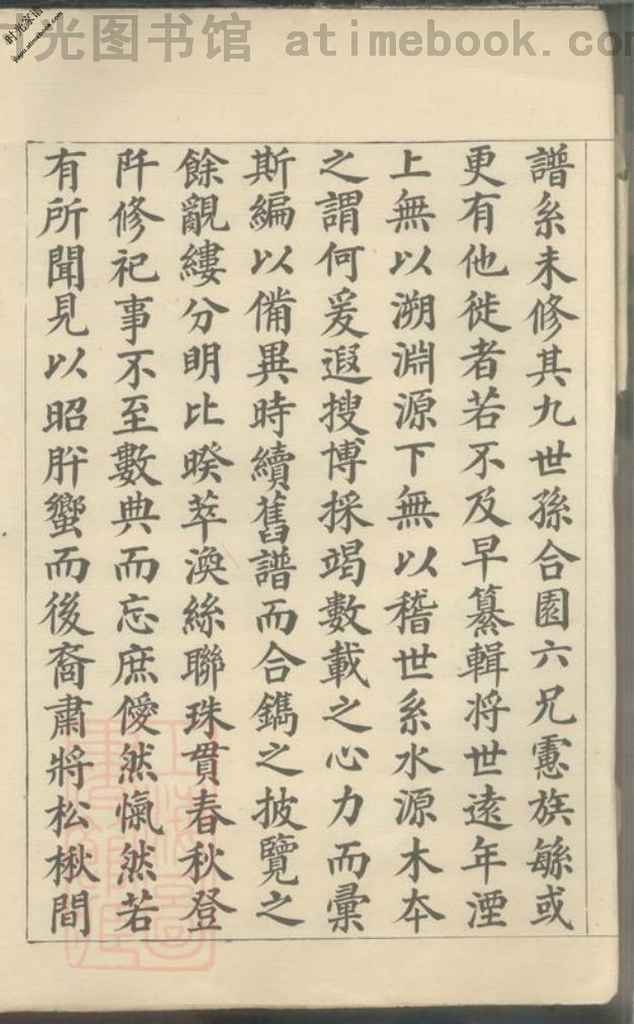 时光图书馆 atimebook.com
譜系未修其九世孫合園六兄慮族緐或
更有他徙者若不及早纂輯將世遠年湮
上無以溯淵源下無以稽世系水源木本
之謂何爰遐搜博採竭數載之心力而彙
斯編以備異時續舊譜而合鐫之披覽之
餘覼縷分明比暌萃渙絲聯珠貫春秋登
阡修祀事不至數典而忘庶僾然愾然若
有所聞見以昭肸蠁而後裔肅將松楸間